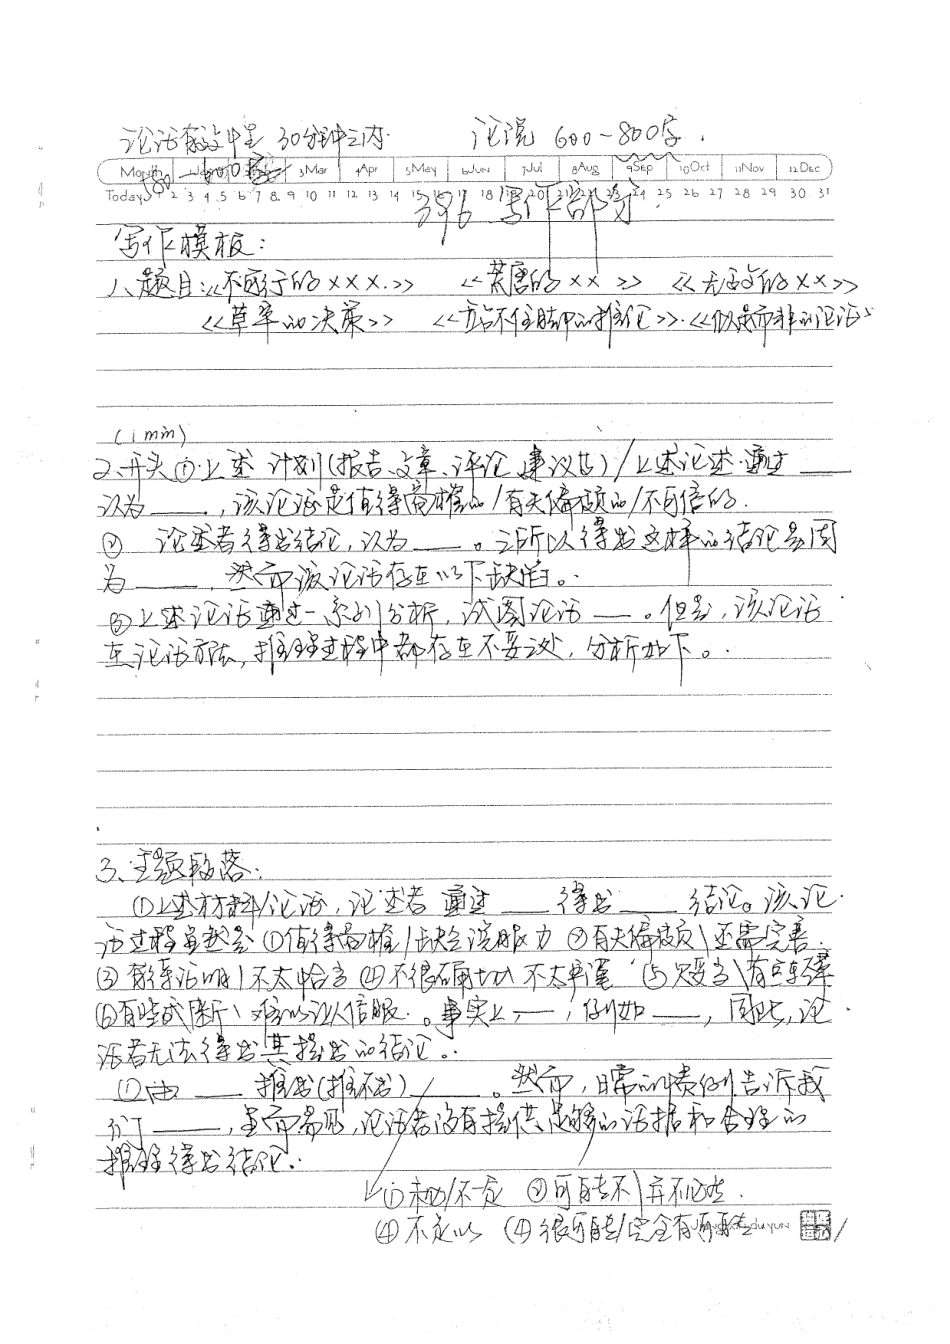 论证有效性 30分钟之内. 论说 600-800字.
Month 3Mar 4Apr 5May 6Jun 7Jul 8Aug 9Sep 10Oct 11Nov 12Dec
Today 2 3 4 5 6 7 8 9 10 11 12 13 14 15 18 20 24 25 26 27 28 29 30 31
396 写作部分.
写作模板:
1、题目:《不可行的×××.》 《荒唐的××》 《无效的××》
《草率的决策》 《站不住脚的推论》.《似是而非的论证》
(1min)
2.开头①.上述计划(报告、文章、评论、建议书)/上述论述.通过____
认为____,该论证是值得商榷的/有失偏颇的/不可信的.
② 论述者得出结论,认为____。之所以得出这样的结论是因
为____,然而该论证存在以下缺陷。.
③上述论证通过一系列分析,试图论证____。但是,该论证
在论证方法,推理过程中都存在不妥之处,分析如下。.
3、主题段落:
①上述材料/论证,论述者通过____得出____结论。该论
证过程虽然是①值得商榷/缺乏说服力②有失偏颇\还需完善.
③ \不太恰当④不很确切\不太严谨 ⑤欠妥当\有
⑥有些武断\难以让人信服.。事实上,____,例如____,因此,论
证者无法得出其提出的结论。.
①由____推出(推不出)____。然而,日常的惯例告诉我
们____,显而易见,论证者没有提供足够的证据和合理的
推理得出结论.
①未必/不一定 ②可能不\并不必然.
④不足以 ④很可能/完全有可能